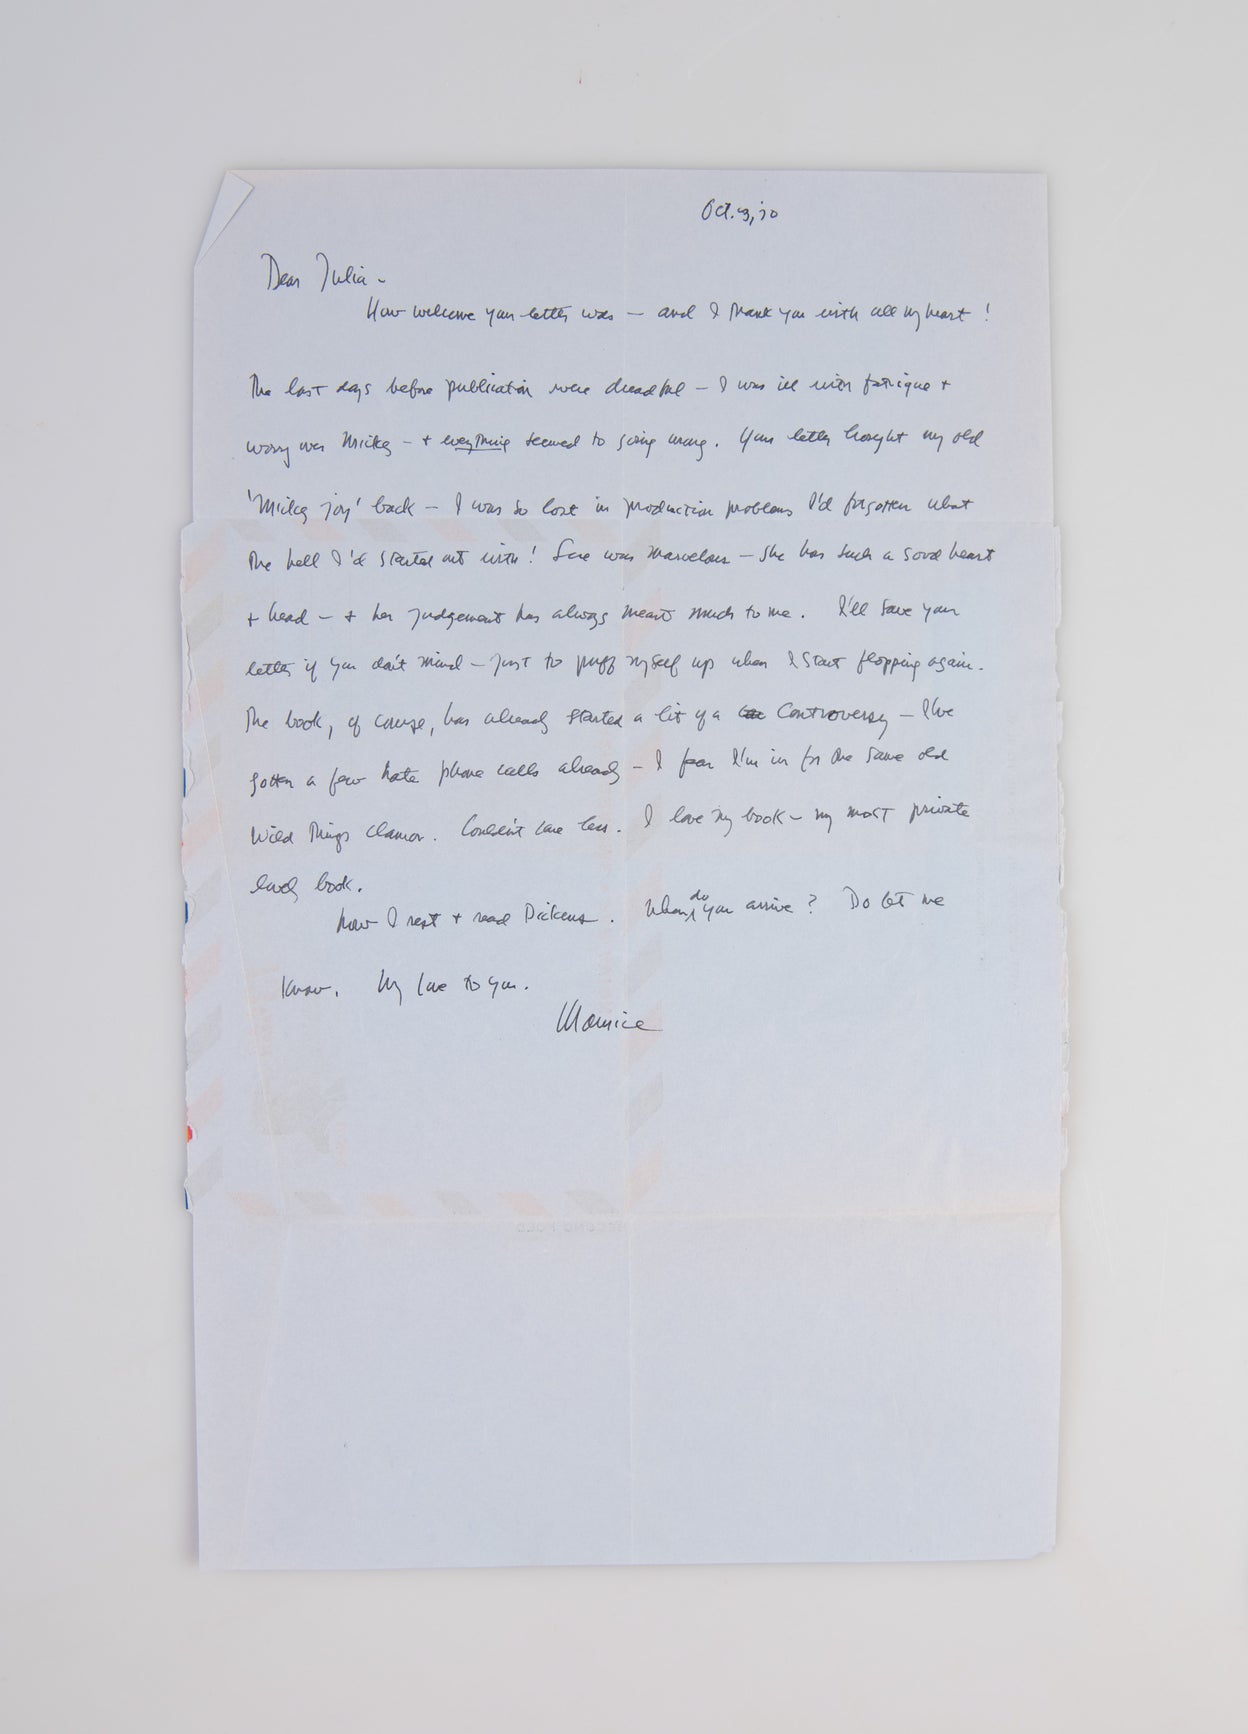 Oct. 3, '70
Dear Julia –
How welcome your letter was – and I thank you with all my heart!
The last days before publication were dreadful – I was ill with fatigue +
worry over Mickey – + everything seemed to going wrong. Your letter brought my old
'Mickey joy' back – I was so lost in production problems I'd forgotten what
the hell I'd started out with! Sue was marvelous – she has such a good heart
+ head – + her judgement has always meant much to me. I'll save your
letter if you don't mind – just to puff myself up when I start flopping again.
The book, of course, has already started a bit of a controversy – I've
gotten a few hate phone calls already – I fear I'm in for the same old
Wild Things clamor. Couldn't care less. I love my book – my most private
lovely book.
Now I rest + read Dickens. When do you arrive? Do let me
know. My love to you.
Maurice
SECOND FOLD